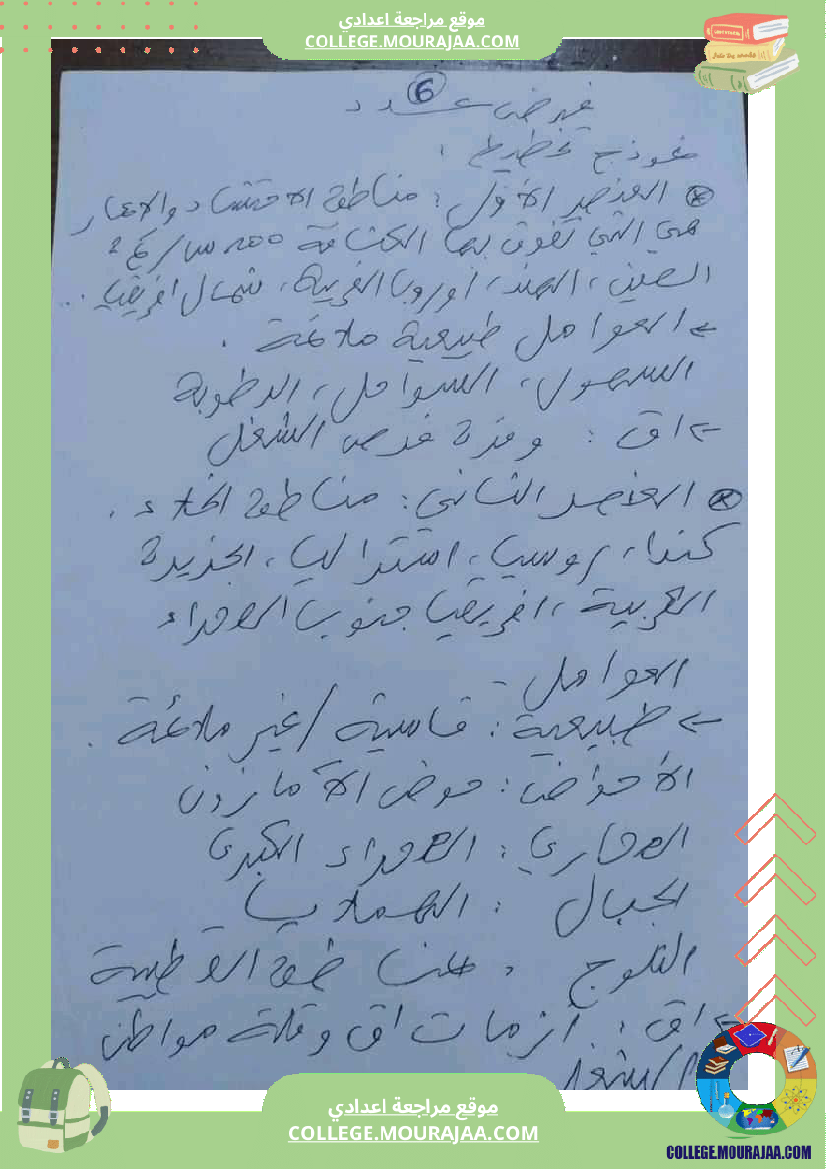 موقع مراجعة اعدادي
COLLEGE.MOURAJAA.COM
فرض عـــدد 6
نموذج تخطيط :
* العنصر الأول : مناطق الاحتشاد والاعمار
هي التي تفوق بها الكثافة 200 س/كم2
الصين، الهند، أوروبا الغربية، شمال افريقيا ...
← العوامل طبيعية ملائمة .
السهول، السواحل، الرطوبة
← اق : وفرة فرص الشغل
* العنصر الثاني : مناطق الخلاء .
كندا، روسيا، استراليا، الجزيرة
العربية، افريقيا جنوب الصحراء
العوامل -
← طبيعية : قاسية / غير ملائمة .
الأحواض : حوض الأمازون
الصحاري : الصحراء الكبرى
الجبال : الهملايا
الثلوج : المناطق القطبية
← اق : أزمات اق وقلة مواطن
الشغل
موقع مراجعة اعدادي
COLLEGE.MOURAJAA.COM
COLLEGE.MOURAJAA.COM